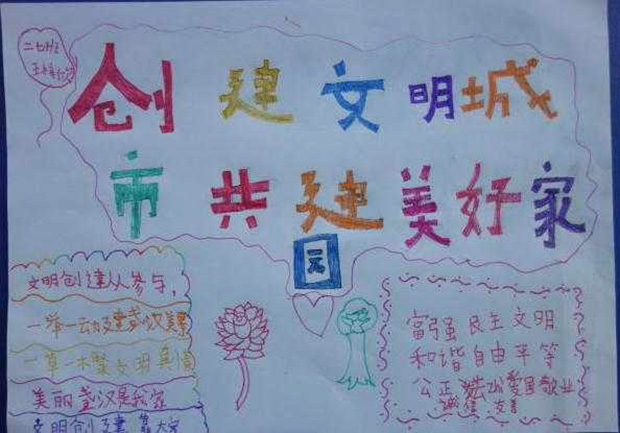 二七班
创建文明城
市共建美好家
园
文明创建人人参与,
一举一动
一草一木
美丽武汉是我家
文明创建靠大家
富强民主文明
和谐自由平等
公正法治爱国敬业
诚信友善